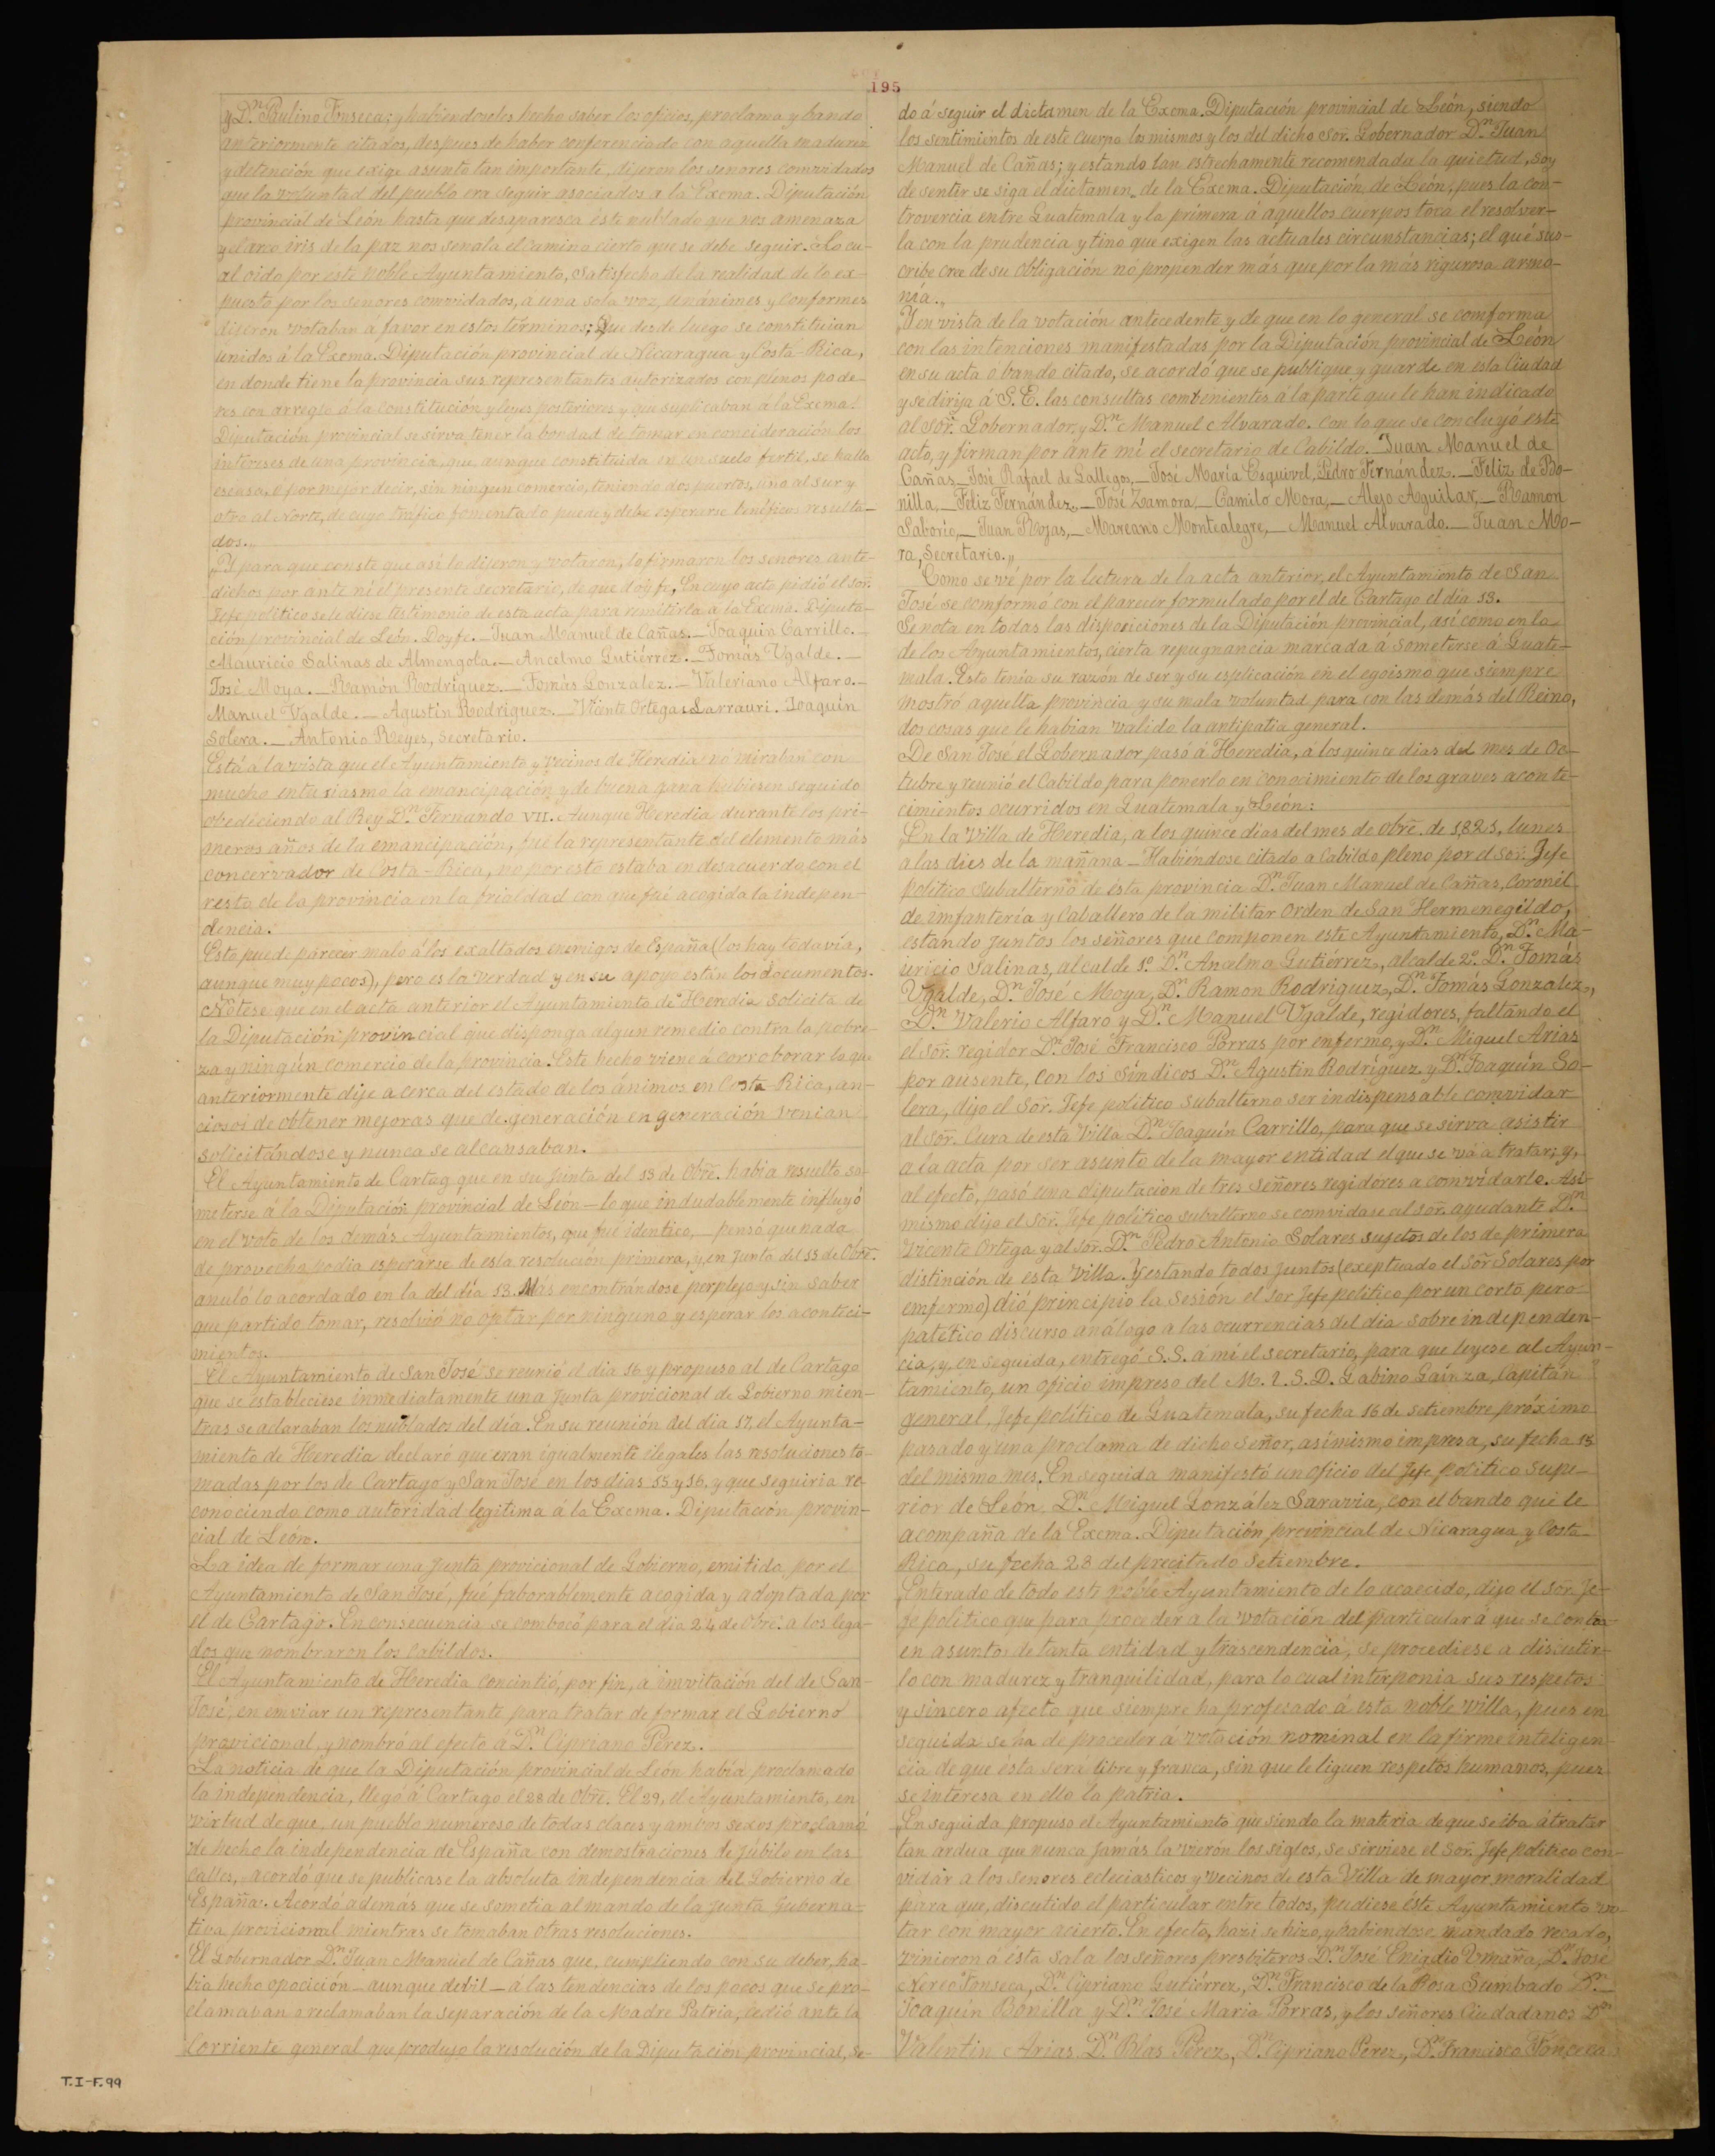 195
y Dn. Paulino Fonseca; y habiendoseles hecho saber los oficios, proclama y bando
anteriormente citados, despues de haber conferenciado con aquella madurez
y detención que exige asunto tan importante, dijeron los senores comvidados
que la voluntad del pueblo era seguir asociados a la Exema. Diputación
provincial de León hasta que desaparesca este nublado que nos amenaza
y el arco iris de la paz nos senala el camino cierto que se debe seguir. Lo cu-
al oido por este noble Ayuntamiento, satisfecho de la realidad de lo ex-
puesto por los senores comvidados, a una sola voz, unánimes y conformes
dijeron votaban á favor en estos términos; Que desde luego se constituian
unidos á la Exema. Diputación provincial de Nicaragua y Costa-Rica,
en donde tiene la provincia sus representantes autorizados con plenos pode-
res con arreglo á la constitución y leyes posteriores y que suplicaban á la Exema.
Diputación provincial se sirva tener la bondad de tomar en concideración los
intereses de una provincia, que aunque constituida en un suelo fertil, se halla
escasa, o por mejor decir, sin ningun comercio, teniendo dos puertos, uno al sur y
otro al Norte, de cuyo tráfico fomentado puede y debe esperarse benéficos resulta-
dos.
„Y para que conste que así lo dijeron y votaron, lo firmaron los senores ante-
dichos por ante mi el presente secretario, de que doy fe, En cuyo acto pidió el sor.
Jefe politico se le diese testimonio de esta acta para remitirla a la Exema. Diputa-
ción provincial de León. Doy fe.—Juan Manuel de Cañas.—Joaquin Carrillo.—
Mauricio Salinas de Almengola.—Ancelmo Gutiérrez.—Tomás Ugalde.—
José Moya.—Ramón Rodríguez.—Tomás Gonzalez.—Valeriano Alfaro.—
Manuel Ugalde.—Agustin Rodriguez.—Vicente Ortega i Larrauri. Joaquín
Solera.—Antonio Reyes, secretario.
Está a la vista que el Ayuntamiento y vecinos de Heredia no miraban con
mucho entusiasmo la emancipación y de buena gana hubiesen seguido
obedeciendo al Rey Dn. Fernando VII. Aunque Heredia durante los pri-
meros años de la emancipación, fue la representante del elemento más
concervador de Costa-Rica, no por esto estaba en desacuerdo con el
resto de la provincia en la frialdad con que fué acogida la indepen-
dencia.
Esto puede parecer malo á los exaltados enemigos de España (los hay todavía,
aunque muy pocos), pero es la verdad y en su apoyo están los documentos.
Nótese que en el acta anterior el Ayuntamiento de Heredia solicita de
la Diputación provincial que disponga algun remedio contra la pobre-
za y ningún comercio de la provincia. Este hecho viene á corroborar lo que
anteriormente dije a cerca del estado de los ánimos en Costa-Rica, an-
ciosos de obtener mejoras que de generación en generación venian
solicitándose y nunca se alcansaban.
El Ayuntamiento de Cartag que en su junta del 13 de Obre. habia resuelto so-
meterse á la Diputación provincial de León—lo que indudablemente influyó
en el voto de los demás Ayuntamientos, que fué identico,—pensó que nada
de provecho podia esperarse de esta resolución primera, y en junta del 15 de Obre.
anuló lo acordado en la del día 13. Más encontrándose perplejo y sin saber
que partido tomar, resolvió no optar por ninguno y esperar los aconteci-
mientos.
El Ayuntamiento de San José se reunió el dia 16 y propuso al de Cartago
que se estableciese inmediatamente una Junta provicional de Gobierno mien-
tras se aclaraban los nublados del día. En su reunión del dia 17, el Ayunta-
miento de Heredia declaró que eran igualmente ilegales las resoluciones to-
madas por los de Cartago y San José en los dias 15 y 16, y que seguiria re-
conociendo como autoridad legitima á la Exema. Diputación provin-
cial de León.
La idea de formar una Junta provicional de Gobierno, emitida por el
Ayuntamiento de San José, fué faborablemente acogida y adoptada por
el de Cartago. En consecuencia se combocó para el dia 24 de Obre. a los lega-
dos que nombraron los cabildos.
El Ayuntamiento de Heredia concintió, por fin, a imvitación del de San-
José, en emviar un representante para tratar de formar el Gobierno
provicional y nombró al efecto á Dn. Cipriano Pérez.
La noticia de que la Diputación provincial de León había proclamado
la independencia, llegó á Cartago el 28 de Obre. El 29, el Ayuntamiento, en
virtud de que un pueblo numeroso de todas clases y ambos sexos proclamó
de hecho la independencia de España con demostraciones de júbilo en las
calles, acordó que se publicase la absoluta independencia del Gobierno de
España. Acordó además que se sometia al mando de la junta Guberna-
tiva provicional mientras se tomaban otras resoluciones.
El Gobernador Dn. Juan Manuel de Cañas que, cumpliendo con su deber, ha-
bia hecho oposición—aunque debil—a las tendencias de los pocos que se pro-
clamaban o reclamaban la separación de la Madre Patria, cedió ante la
corriente general que produjo la resolución de la Diputación provincial, de-
do á seguir el dictamen de la Exema. Diputación provincial de León, siendo
los sentimientos de este cuerpo los mismos y los del dicho sor. Gobernador Dn. Juan
Manuel de Cañas; y estando tan estrechamente recomendada la quietud, soy
de sentir se siga el dictamen de la Exema. Diputación de León, pues la con-
trovercia entre Guatemala y la primera á aquellos cuerpos toca el resolver-
la con la prudencia y tino que exigen las actuales circunstancias; el qué sus-
cribe cree de su obligación nó propender más que por la más rigurosa armo-
nía.„
„Y en vista de la votación antecedente y de que en lo general se comforma
con las intenciones manifestadas por la Diputación provincial de León
en su acta o bando citado, se acordó que se publique y guarde en esta Ciudad
y se dirija á S. E. las consultas combenientes á la parte que le han indicado
al sor. Gobernador, y Dn. Manuel Alvarado. con lo que se concluyó este
acto, y firman por ante mí el secretario de Cabildo. Juan Manuel de
Cañas—José Rafael de Gallegos,—José María Esquivel, Pedro Fernández.—Feliz de Bo-
nilla,—Feliz Fernández,—José Zamora,—Camilo Mora,—Alejo Aguilar,—Ramon
Saborío,—Juan Rojas,—Mareano Montealegre,—Manuel Alvarado.—Juan Mo-
ra, Secretario.„
Como se vé por la lectura de la acta anterior, el Ayuntamiento de San
José se comformó con el parecer formulado por el de Cartago el día 13.
Se nota en todas las disposiciones de la Diputación provincial, asi como en la
de los Ayuntamientos, cierta repugnancia marcada á someterse á Guate-
mala. Esto tenía su razón de ser y su esplicación en el egoismo que siempre
mostró aquella provincia y su mala voluntad para con las demás del Reino,
dos cosas que le habian valido la antipatia general.
De San José el Gobernador pasó á Heredia, a los quince dias del mes de Oc-
tubre y reunió el Cabildo para ponerlo en conocimiento de los graves aconte-
cimientos ocurridos en Guatemala y León:
En la Villa de Heredia, a los quince dias del mes de obre. de 1821, lunes
a las dies de la mañana—Habiéndose citado a Cabildo pleno por el sor. Jefe
politico subalterno de esta provincia Dn. Juan Manuel de Cañas, Coronél
de imfantería y Caballero de la militar Orden de San Hermenegildo,
estando juntos los señores que componen este Ayuntamiento, Dn. Ma-
uricio Salinas, alcalde 1º. Dn. Anselmo Gutiérrez, alcalde 2º. Dn. Tomás
Ugalde, Dn. José Moya, Dn. Ramon Rodríguez, Dn. Tomás Gonzalez,
Dn. Valerio Alfaro y Dn. Manuel Ugalde, regidores, faltando el
el sor. regidor Dn. José Francisco Porras por enfermo, y Dn. Miguel Arias
por ausente, con los Síndicos Dn. Agustin Rodríguez y Dn. Joaquín So-
lera, dijo el Sor. Jefe politico subalterno ser indispensable comvidar
al sor. Cura de esta Villa Dn. Joaquín Carrillo, para que se sirva asistir
a la acta por ser asunto de la mayor entidad el que se vá a tratar; y,
al efecto, pasó una diputación de tres señores regidores a comvidarlo. Asi-
mismo dijo el sor. Jefe politico subalterno se comvidase al sor. ayudante Dn.
Vicente Ortega y al sor. Dn. Pedro Antonio Solares sujetos de los de primera
distinción de esta Villa. Y estando todos juntos (exeptuado el sor Solares por
emfermo) dió principio la sesión el sor Jefe politico por un corto pero
patético discurso análogo a las ocurrencias del dia sobre independen-
cia, y, en seguida, entregó S.S. á mí el secretario, para que leyese al Ayun-
tamiento, un oficio impreso del M. I. S. D. Gabino Gaínza, Capitán
general, Jefe político de Guatemala, su fecha 16 de setiembre próximo
pasado y una proclama de dicho señor, asímismo impresa, su fecha 15
del mismo mes. En seguida manifestó un oficio del Jefe politico supe-
rior de León Dn. Meiguel González Saravia, con el bando que le
acompaña de la Exema. Diputación provincial de Nicaragua y Costa
Rica, su fecha 28 del precitado Setiembre.
Enterado de todo este noble Ayuntamiento de lo acaecido, dijo el sor. Je-
fe politico que para proceder a la votación del particular á que se contrae
en asunto de tanta entidad y trascendencia, se procediese a discutir-
lo con madurez y tranquilidad, para lo cual interponia sus respetos
y sincero afecto que siempre ha profesado á esta noble villa, pues en
seguida se há de proceder á votación nominal en la firme inteligen-
cia de que ésta será libre y franca, sin que le liguen respetos humanos, pues
se interesa en ello la patria.
En seguida propuso el Ayuntamiento que siendo la materia de que se iba á tratar
tan ardua que nunca jamás la vierón los siglos, se sirviese el sor. Jefe politico con-
vidár a los senores eclesiasticos y vecinos de esta Villa de mayor moralidad
para que, discutido el particular entre todos, pudiese este Ayuntamiento vo-
tar con mayor acierto. En efecto, hazi se hizo, y habiéndose mandado recado,
vinieron á ésta sala los señores presbiteros Dn. José Enigdio Umaña, Dn. José
Nereo Fonseca, Dn. Cipriano Gutiérrez, Dn. Francisco de la Rosa Sumbado Dn.
Joaquin Bonilla y Dn. José Maria Porras, y los señores Ciudadanos Dn
Valentin Arias Dn. Blas Pérez, Dn. Cipriano Pérez, Dn. Francisco Fonceca
T.I-F.99